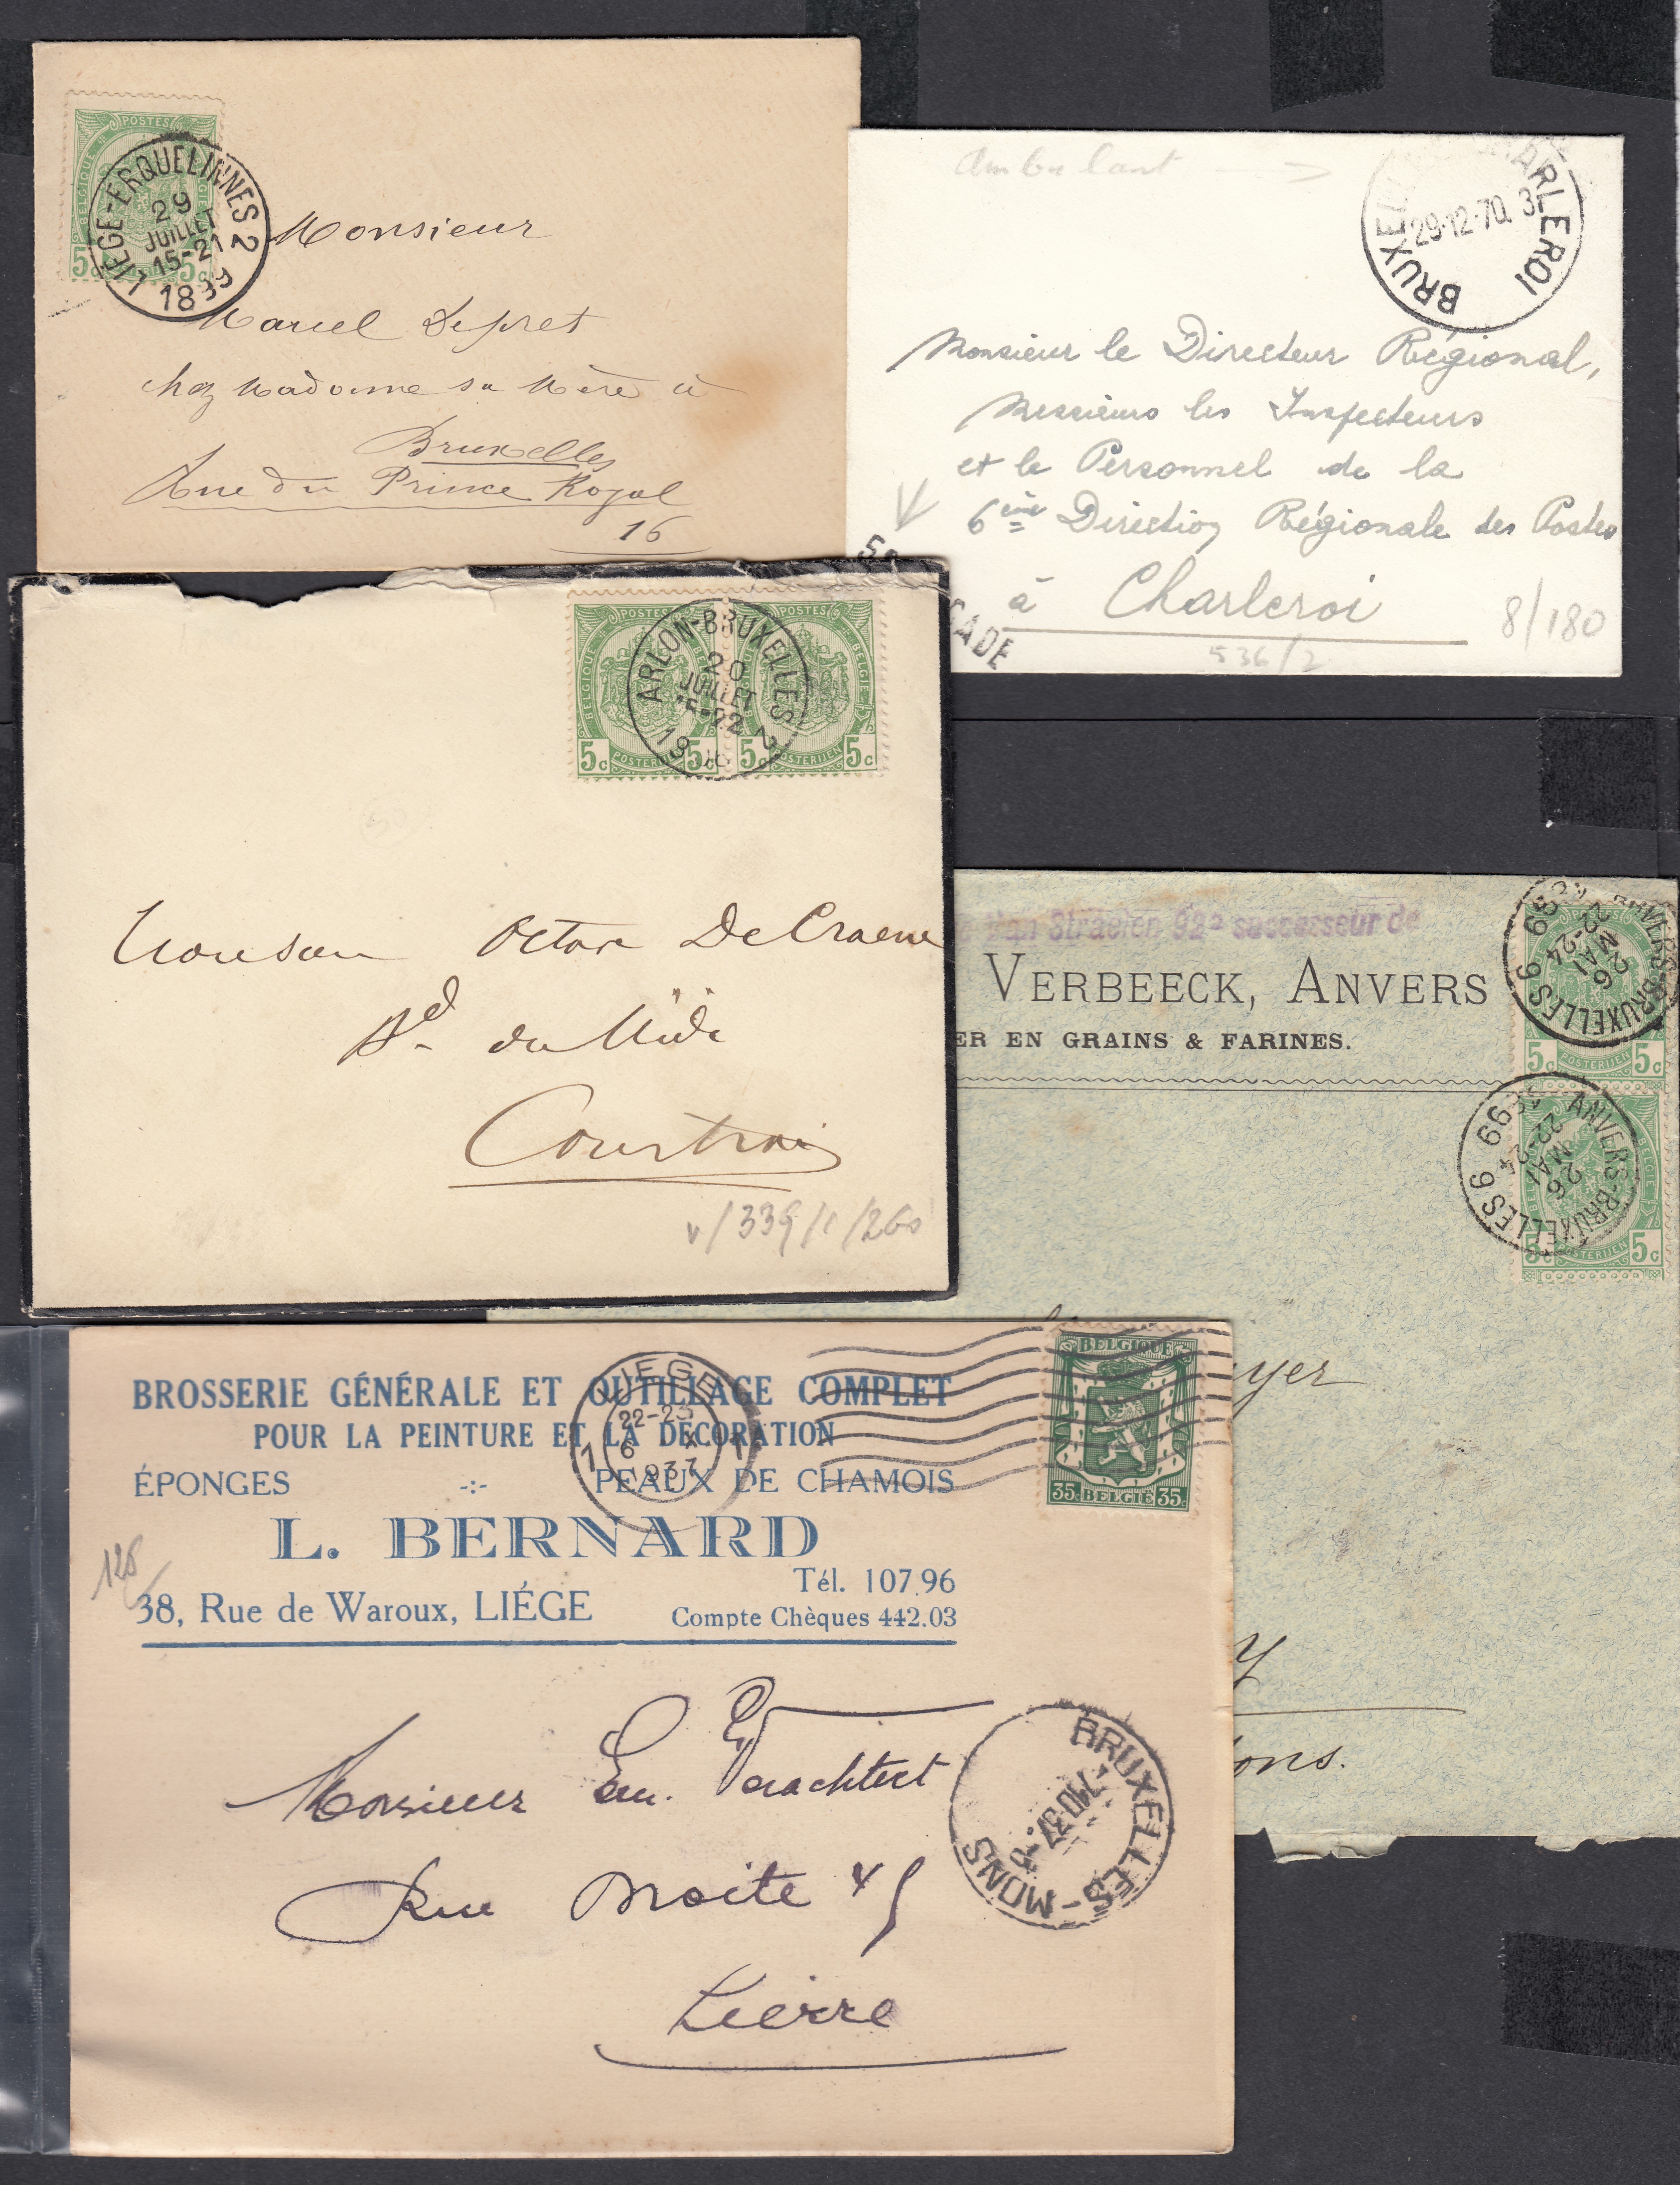 POSTES
BELGIQUE
5c 5c
LIÉGE-ERQUELINNES 2
29
JUILLET
15-21
1899
Monsieur
Marcel Depret
chez Madame sa Mère à
Bruxelles
Rue du Prince Royal
16
Ambulant
CHARLEROI
29-12-70
BRUXEL
Monsieur le Directeur Régional,
Messieurs les Inspecteurs
et le Personnel de la
6ème Direction Régionale des Postes
à Charleroi
8/180
536/2
CADE
POSTES POSTES
BELGIQUE BELGIE
ARLON-BRUXELLES 2
20
JUILLET
5c 5c 5c 5c
POSTERIJEN POSTERIJEN
Octave De Craene
Bd du Midi
Courtrai
v/339/1/260
Van Straelen successeur de
VERBEECK, ANVERS
ER EN GRAINS & FARINES.
ANVERS-BRUXELLES 6
26
MAI
22-24
99
5c POSTERIJEN 5c
ANVERS-BRUXELLES 6
26
MAI
22-24
99
5c POSTERIJEN 5c
yer
y
ons.
BROSSERIE GÉNÉRALE ET OUTILLAGE COMPLET
POUR LA PEINTURE ET LA DÉCORATION
ÉPONGES -:- PEAUX DE CHAMOIS
L. BERNARD
Tél. 107.96
38, Rue de Waroux, LIÉGE Compte Chèques 442.03
LIEGE
22-23
6
1937
1 1
BELGIQUE
35c BELGIË 35c
128
Monsieur Em. Verachtert
Rue Droite 45
Lierre
BRUXELLES-MONS